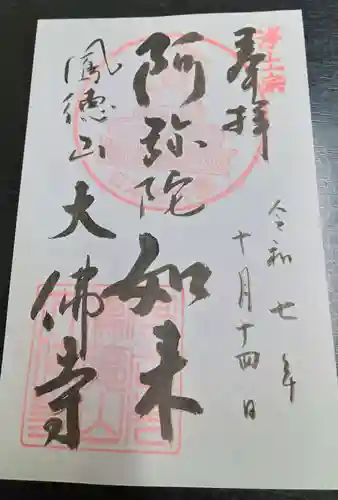 浄土宗
奉拝
令和七年
十月十四日
阿弥陀如来
鳳徳山
大佛寺